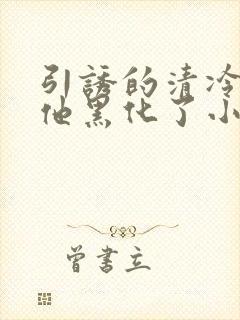 引誘的清冷
他黑化了小
曾書立